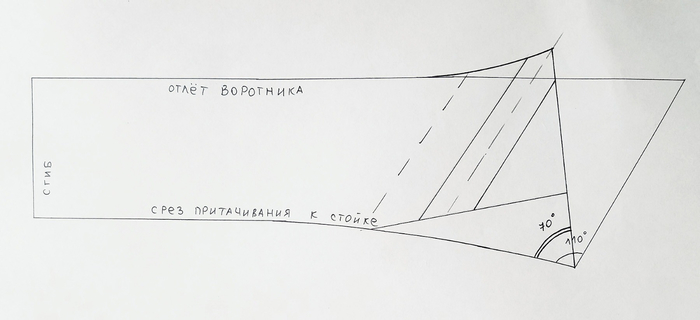 ОТЛЁТ ВОРОТНИКА
СГИБ
СРЕЗ ПРИТАЧИВАНИЯ К СТОЙКЕ
70°
110°